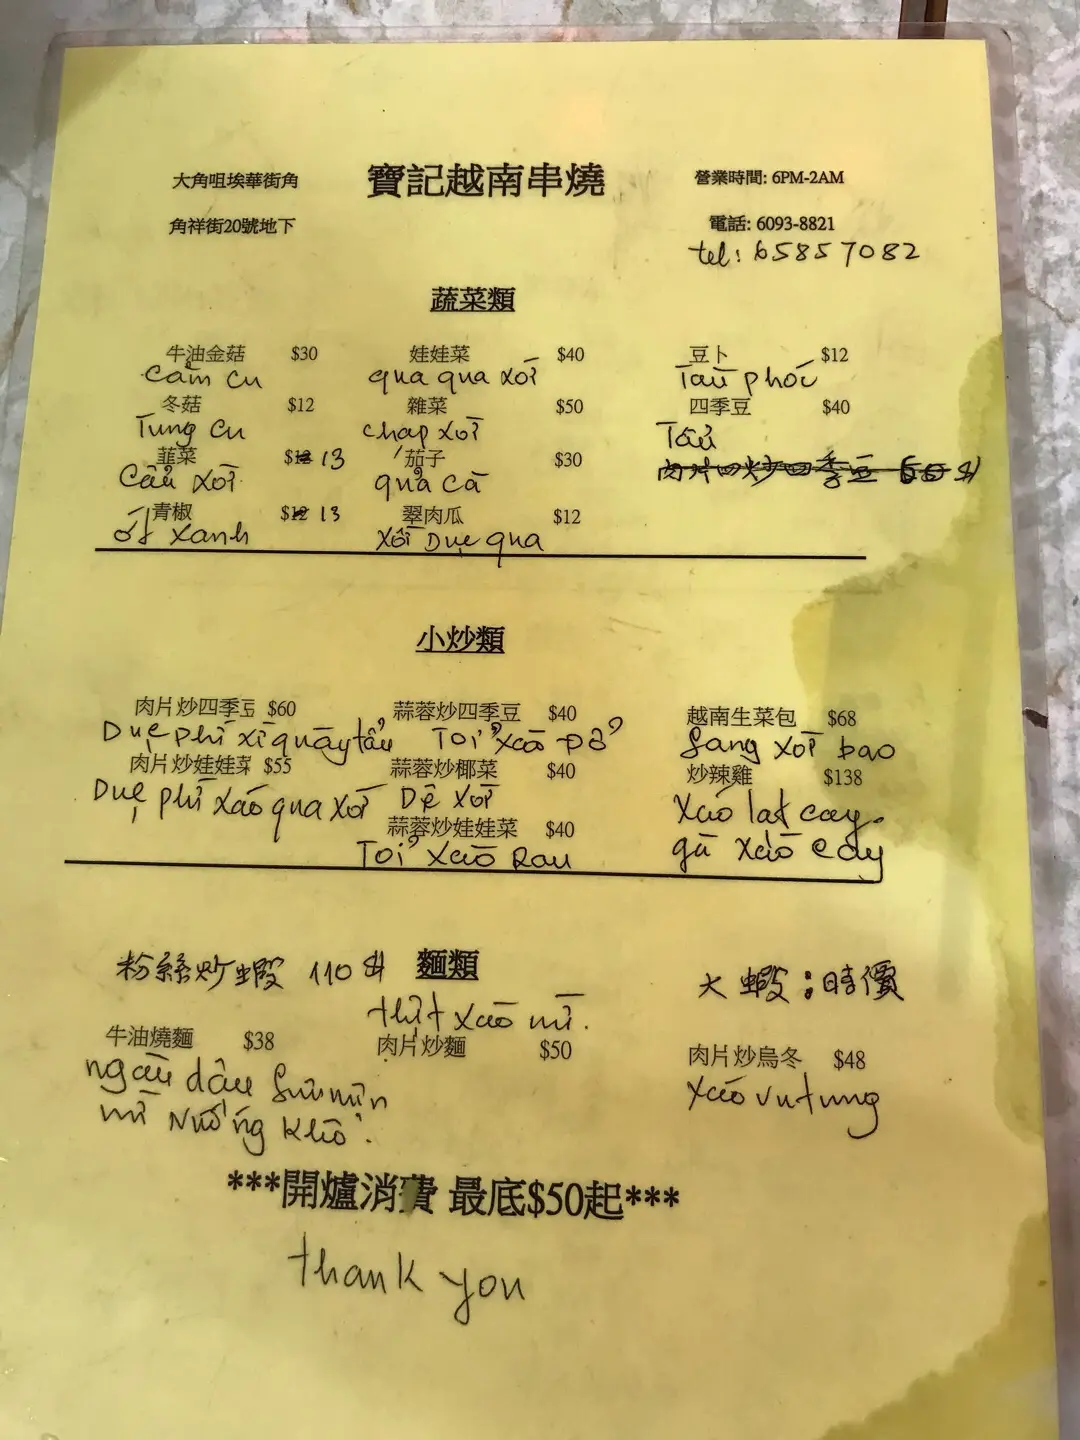 大角咀埃華街角 寶記越南串燒 營業時間: 6PM-2AM
角祥街20號地下 電話: 6093-8821
tel: 65857082
蔬菜類
牛油金菇 $30 娃娃菜 $40 豆卜 $12
cầm cu qua qua xơi Tàu phóc
冬菇 $12 雜菜 $50 四季豆 $40
Tung cu chap xơi Tẩu
韮菜 $12 13 茄子 $30 肉片四炒四季豆
Cẩu xơi quả cà
青椒 $12 13 翠肉瓜 $12
ớt xanh xơi Due qua
小炒類
肉片炒四季豆 $60 蒜蓉炒四季豆 $40 越南生菜包 $68
Toi xào Sang xơi bao
肉片炒娃娃菜 $55 蒜蓉炒椰菜 $40 炒辣雞 $138
Due phí xáo qua xơi Dê xơi xáo lat cay.
蒜蓉炒娃娃菜 $40
Toi xào Rau gà xào cay
粉絲炒蝦 110 $ 麵類 大蝦:時價
thịt xào mì.
牛油燒麵 $38 肉片炒麵 $50 肉片炒烏冬 $48
ngàu dâu xáo vutung
mì Nướng khô.
***開爐消費 最底$50起***
thank you